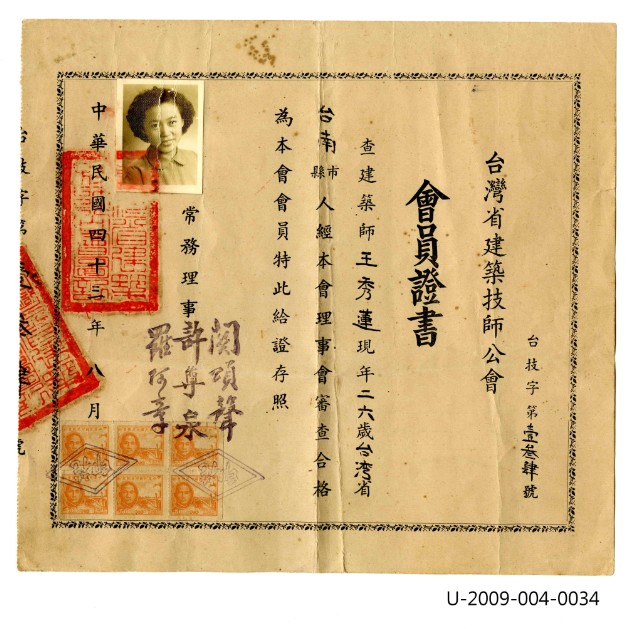 台技字第壹叁肆號
台灣省建築技師公會
會員證書
查建築師王秀蓮現年二六歲台湾省
台南市縣人經本會理事會審查合格
為本會會員特此給證存照
常務理事
關頌聲
許尊泉
羅阿章
中華民國四十三年八月
台技字第
號
U-2009-004-0034